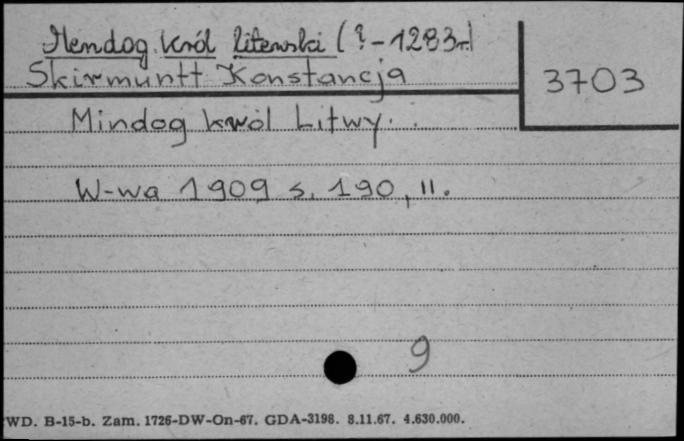 Mendog król litewski (?-1283r.)
Skirmuntt Konstancja
3703
Mindog król Litwy.
W-wa 1909 s. 190, II.
9
WD. B-15-b. Zam. 1726-DW-On-67. GDA-3198. 8.11.67. 4.630.000.